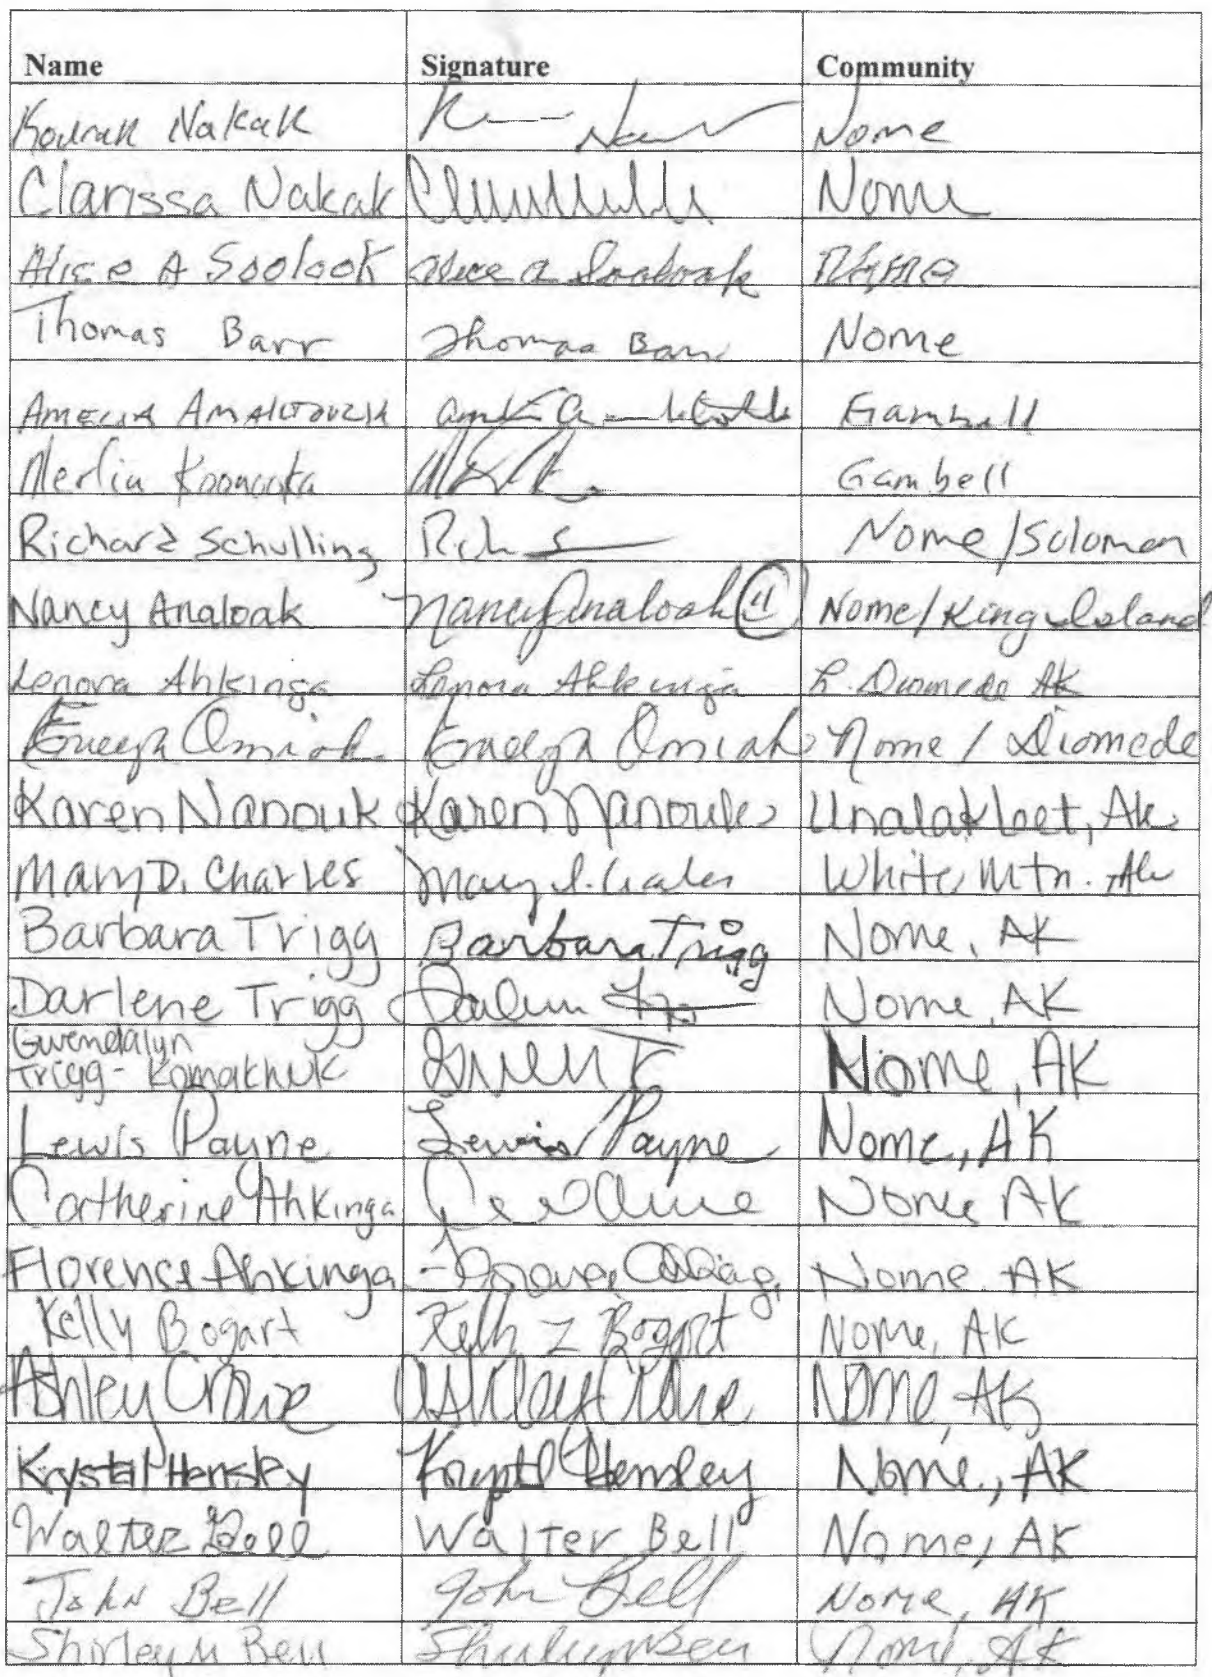 Name Signature Community
Nakak Nome
Clarissa Nakak Nome
Alice A Soolook Alice A Soolook Nome
Thomas Barr Thomas Barr Nome
Gambell
Merlin Koonooka Gambell
Richard Schulling Nome/Solomon
Nancy Analoak Nancy Analoak Nome/King Island
Lenora Ahkinga Lenora Ahkinga L. Diomede AK
Omiak Omiak Nome / Diomede
Karen Nanouk Karen Nanouk Unalakleet, Ak
Mary D. Charles Mary D. Charles White Mtn. Ak
Barbara Trigg Barbara Trigg Nome, AK
Darlene Trigg Nome, AK
Gwendalyn
Trigg-Komakhuk Nome, AK
Lewis Payne Lewis Payne Nome, AK
Catherine Ahkinga Nome AK
Florence Ahkinga Nome, AK
Kelly Bogart Kelly Z Bogart Nome, AK
Ashley Crowe Ashley Crowe Nome, AK
Krystal Hensley Krystal Hensley Nome, AK
Walter Bell Walter Bell Nome, AK
John Bell John Bell Nome, AK
Shirley M Bell Shirley M Bell Nome, AK